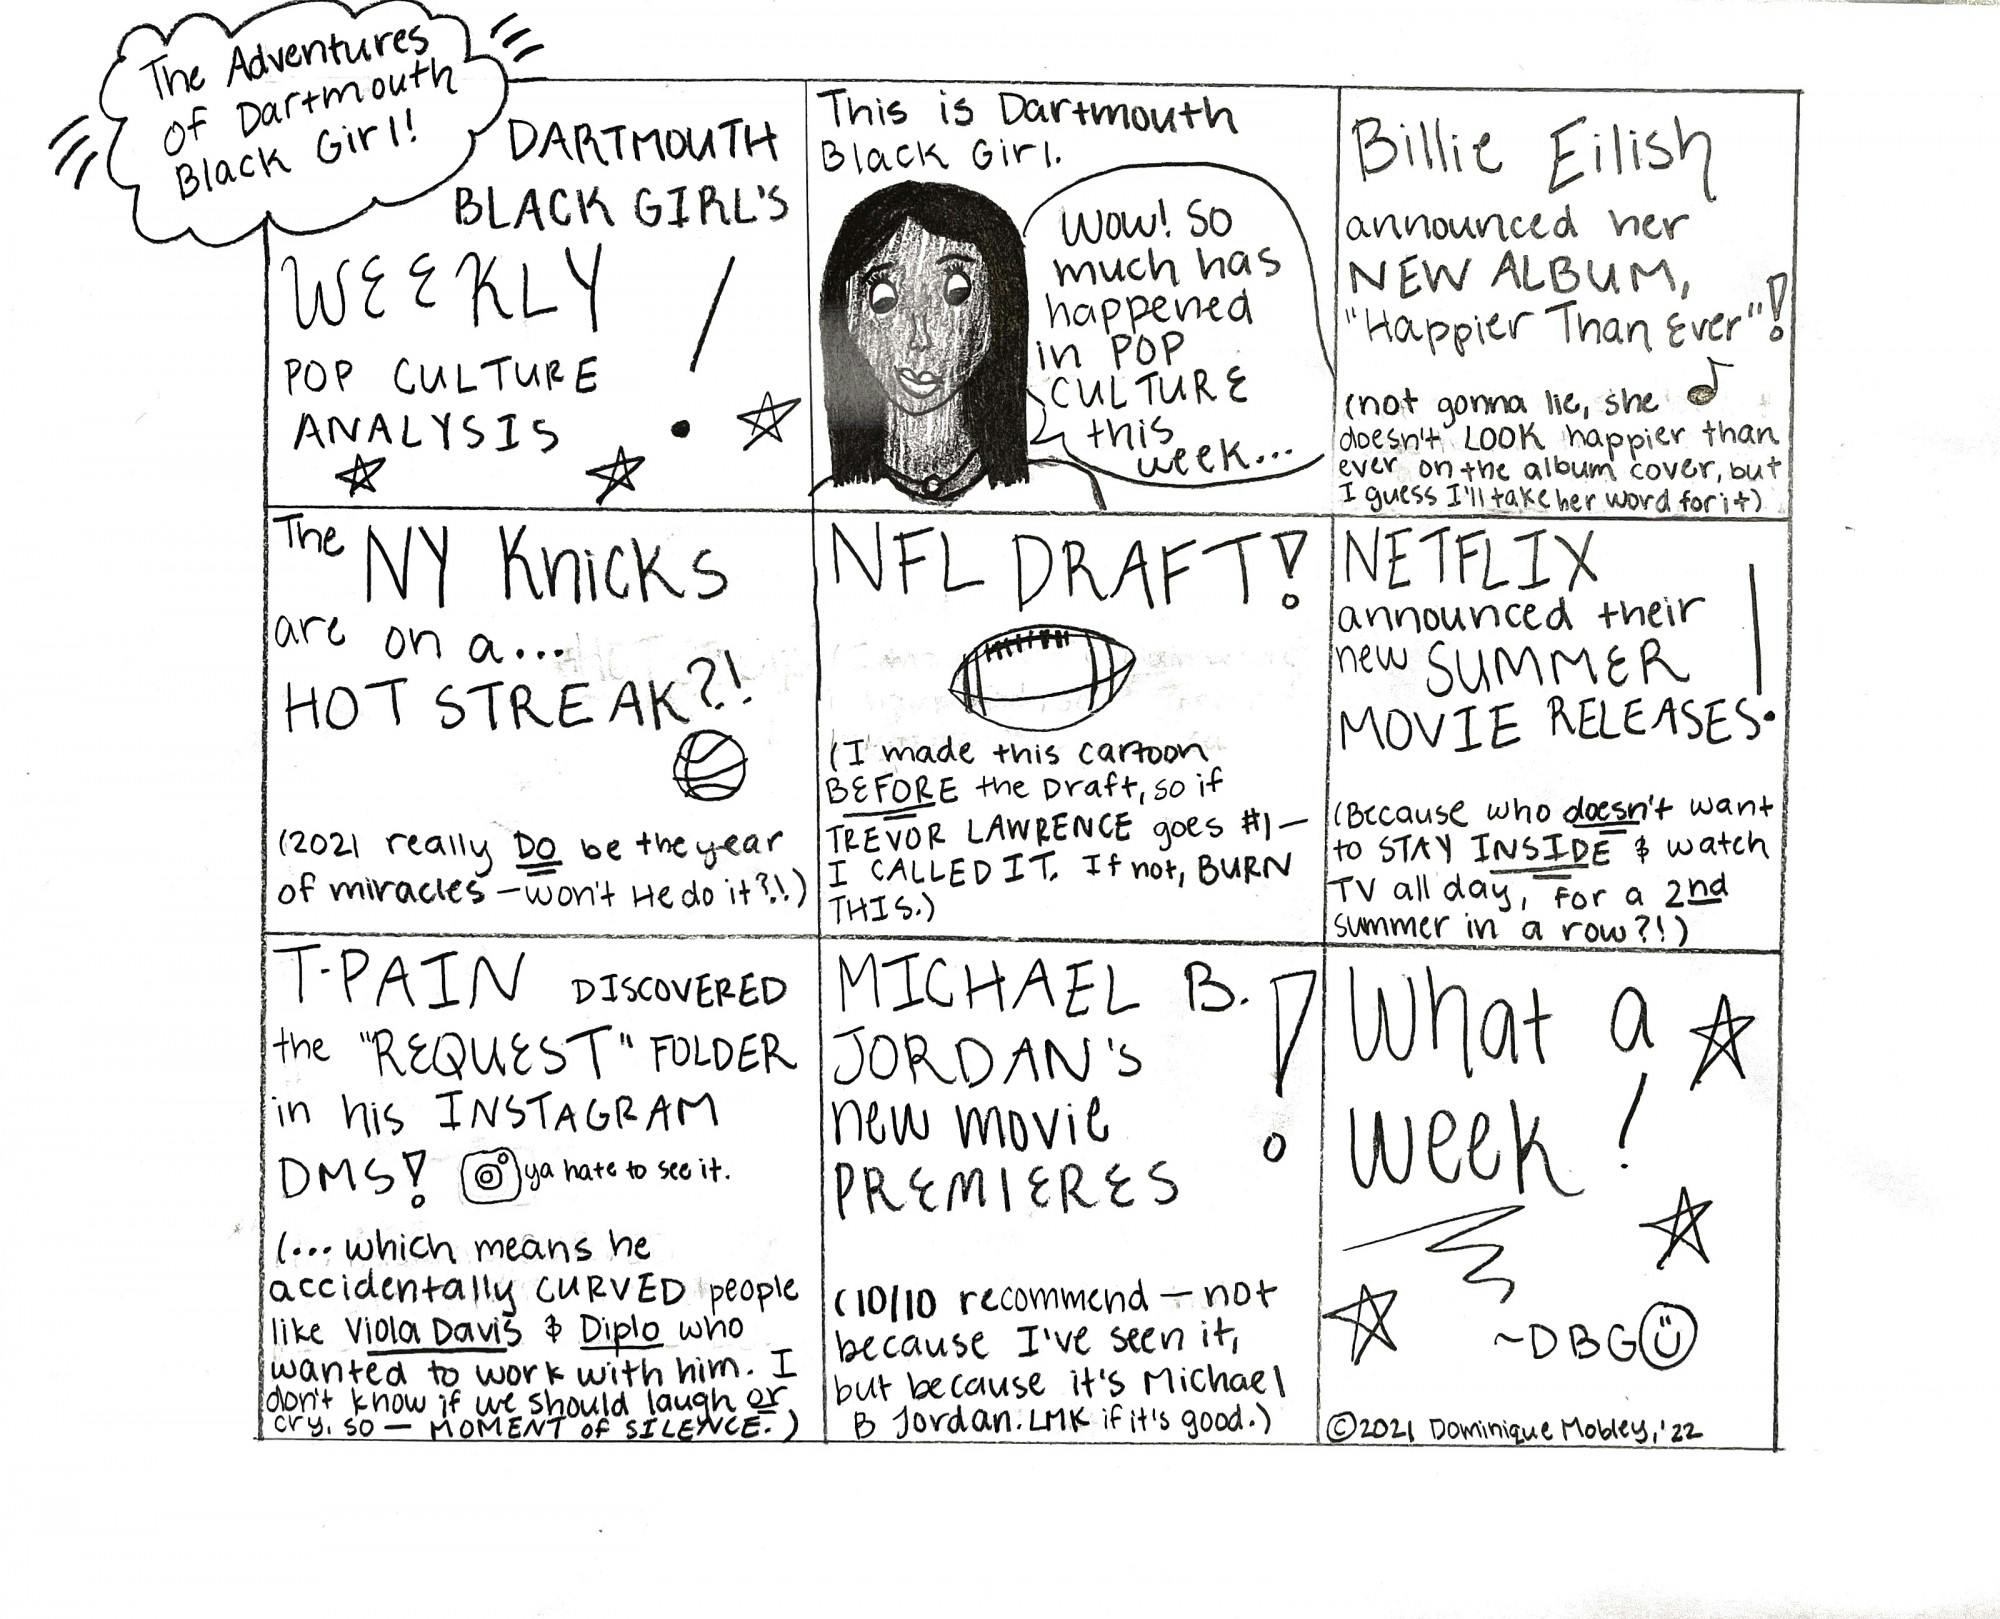 The Adventures
of Dartmouth
Black Girl!
DARTMOUTH
BLACK GIRL'S
WEEKLY
POP CULTURE
ANALYSIS!
This is Dartmouth
Black Girl.
Wow! So
much has
happened
in POP
CULTURE
this
week...
Billie Eilish
announced her
NEW ALBUM,
"Happier Than Ever"!
(not gonna lie, she
doesn't LOOK happier than
ever on the album cover, but
I guess I'll take her word for it)
The NY Knicks
are on a...
HOT STREAK?!
(2021 really DO be the year
of miracles — won't He do it?!)
NFL DRAFT!
(I made this cartoon
BEFORE the Draft, so if
TREVOR LAWRENCE goes #1—
I CALLED IT. If not, BURN
THIS.)
NETFLIX
announced their
new SUMMER
MOVIE RELEASES!
(Because who doesn't want
to STAY INSIDE & watch
TV all day, for a 2nd
summer in a row?!)
T-PAIN DISCOVERED
the "REQUEST" FOLDER
in his INSTAGRAM
DMS! ya hate to see it.
(... which means he
accidentally CURVED people
like Viola Davis & Diplo who
wanted to work with him. I
don't know if we should laugh or
cry, so — MOMENT of SILENCE.)
MICHAEL B.
JORDAN'S
new movie
PREMIERES!
(10/10 recommend — not
because I've seen it,
but because it's Michael
B Jordan. LMK if it's good.)
What a
week!
~DBG
©2021 Dominique Mobley, '22